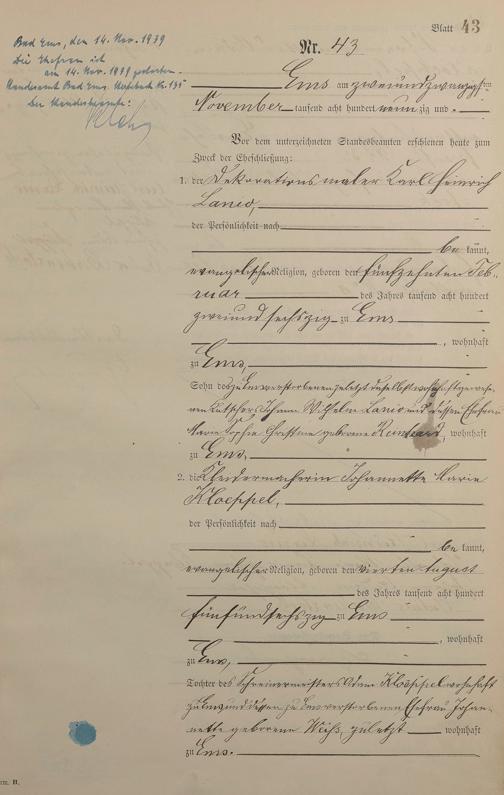 Blatt 43
Bad Ems, den 14. Nov. 1939
Die Ehefrau ist
am 14. Nov. 1939 gestorben.
Standesamt Bad Ems. Sterbebuch Nr. 135
Der Standesbeamte:
Nr. 43
Ems am zweiundzwanzigsten
November tausend acht hundert neunzig und -
Vor dem unterzeichneten Standesbeamten erschienen heute zum
Zweck der Eheschließung:
1. der Dekorationsmaler Karl Heinrich
Lanio,
der Persönlichkeit nach
be kannt,
evangelischer Religion, geboren den fünfzehnten Feb-
ruar des Jahres tausend acht hundert
zweiundsechszig zu Ems
, wohnhaft
zu Ems,
Sohn des zu Ems verstorbenen zuletzt daselbst wohnhaft gewese-
nen Kutschers Johann Wilhelm Lanio und dessen Ehefrau
Marie Sophie Christine geborene, wohnhaft
zu Ems.
2. die Kleidermacherin Johannette Marie
Kloeppel,
der Persönlichkeit nach
be kannt,
evangelischer Religion, geboren den vierten August
des Jahres tausend acht hundert
fünfundsechszig zu Ems
, wohnhaft
zu Ems,
Tochter des Schreinermeisters Adam Kloeppel wohnhaft
zu Ems und dessen zu Ems verstorbenen Ehefrau Johan-
nette geborene, zuletzt wohnhaft
zu Ems.